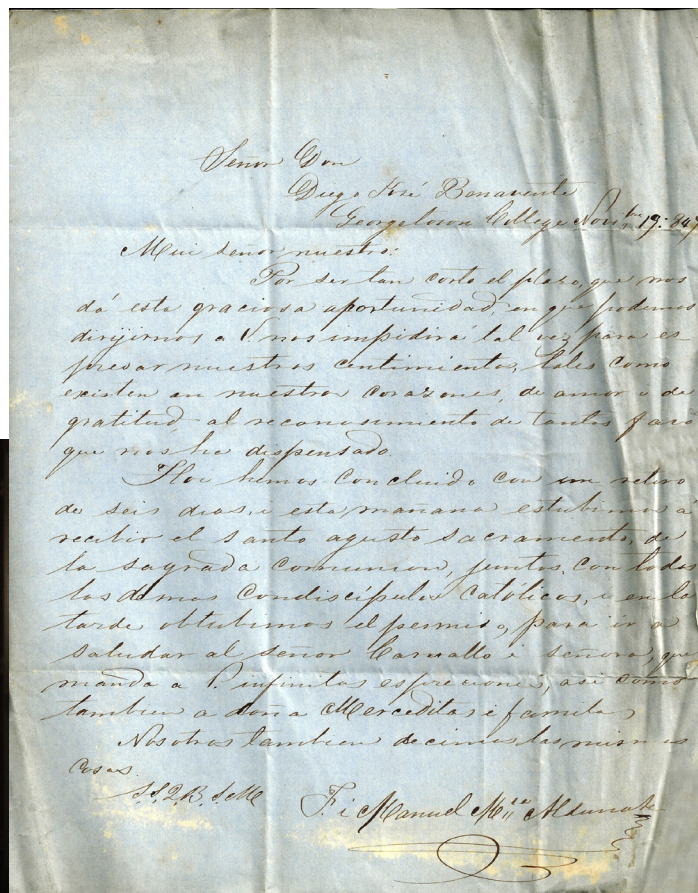 Señor Don
Diego José Benavente
Georgetown College Novs. bre 19: 84
Mui señor nuestro:
Por ser tan corto el plazo, que nos
dá esta graciosa aportunidad, en que podemos
dirijirnos a V. nos impidirá tal vez para es
presar nuestros centimientos, tales como
existen en nuestros corazones, de amor i de
gratitud al reconosimiento de tantos favo
que nos ha dispensado.
Hoi hemos concluido con un retiro
de seis dias, i esta mañana estubimos a
recibir el santo agusto sacramento, de
la sagrada comunion, juntos, con todos
los demas condiscípulos católicos, i en la
tarde obtubimos el permiso, para ir a
saludar al señor Carvallo i señora, que
manda a V. infinitas espreciones, asi como
tambien a doña Merceditas i familia,
Nosotros tambien decimos las mismas
cosas.
S.S.Q.B.S.M F. i Manuel Mª Aldunate